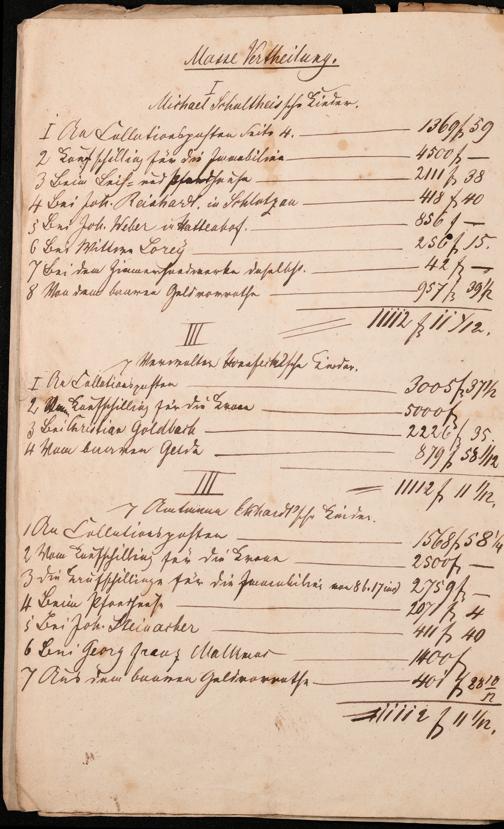 Masse Vertheilung.
I
Michael Schultheis'sche Kinder.
1 An Collationsposten Seite 4. 1369 f 59
2 Kaufschilling für die Immobilien 4500 f —
3 Beim Leih- und Pfandhause 2111 f 38
4 Bei Joh. Reinhardt in Schlotzau 418 f 40
5 Bei Joh. Weber in Hattenhof. 856 f —
6 Bei Wittwe Lorey 256 f 15.
7 Bei dem Zimmerhandwerke daselbst. 42 f —
8 Von dem baaren Geldvorrathe 957 f 39½
11112 f 11 1/12.
III
Verwalter Kinder.
1 An Collationsposten 3005 f 37½
2 Vom Kaufschilling für die Krone 5000 f
3 Bei Christian Goldbach 2226 f 35.
4 Vom baaren Gelde 879 f 58 1/12
11112 f 11 1/12.
III
Amtmann Ekhardt'sche Kinder.
1 An Collationsposten 1568 f 58¼
2 Vom Kaufschilling für die Krone 2500 f —
3 die Kaufschillinge für die Immobilien von 8 b. 17 incl 2759 f —
4 Beim Pfandhause f 4
5 Bei Joh. Steinacker 411 f 40
6 Bei Georg Franz 1400 f
7 Aus dem baaren Geldvorrathe 401 f 28 10/12
11112 f 11 1/12.